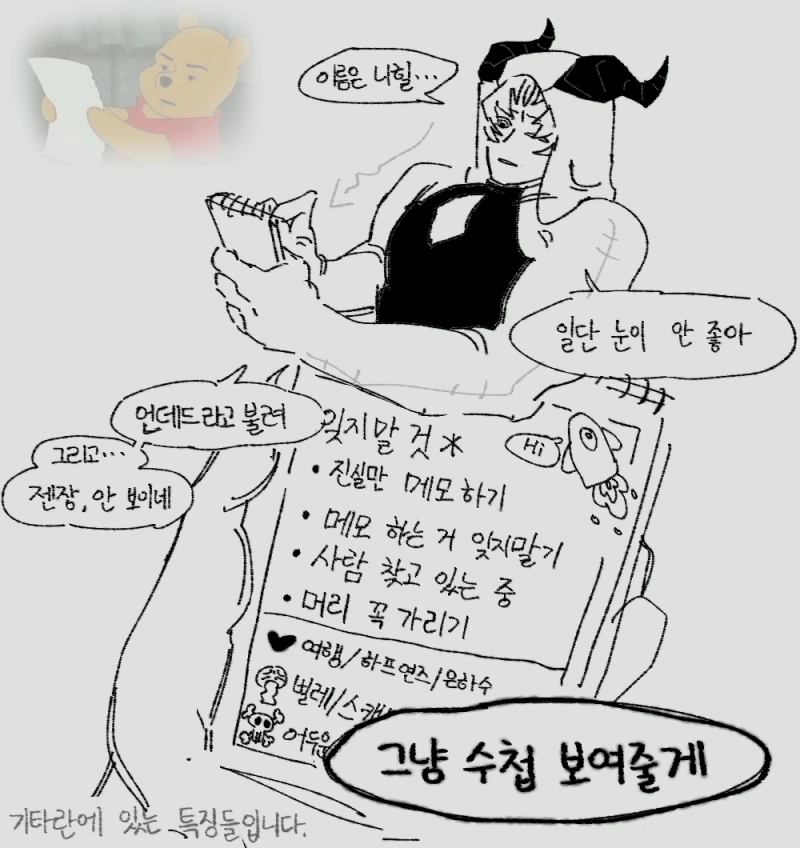 이름은 니힐...
일단 눈이 안 좋아
언데드라고 불려
그리고...
젠장, 안 보이네
잊지말 것 *
Hi
• 진실만 메모하기
• 메모 하는 거 잊지말기
• 사람 찾고 있는 중
• 머리 꼭 가리기
여행/하프연주/은하수
벌레/스캐
어두운
그냥 수첩 보여줄게
기타란에 있는 특징들입니다.